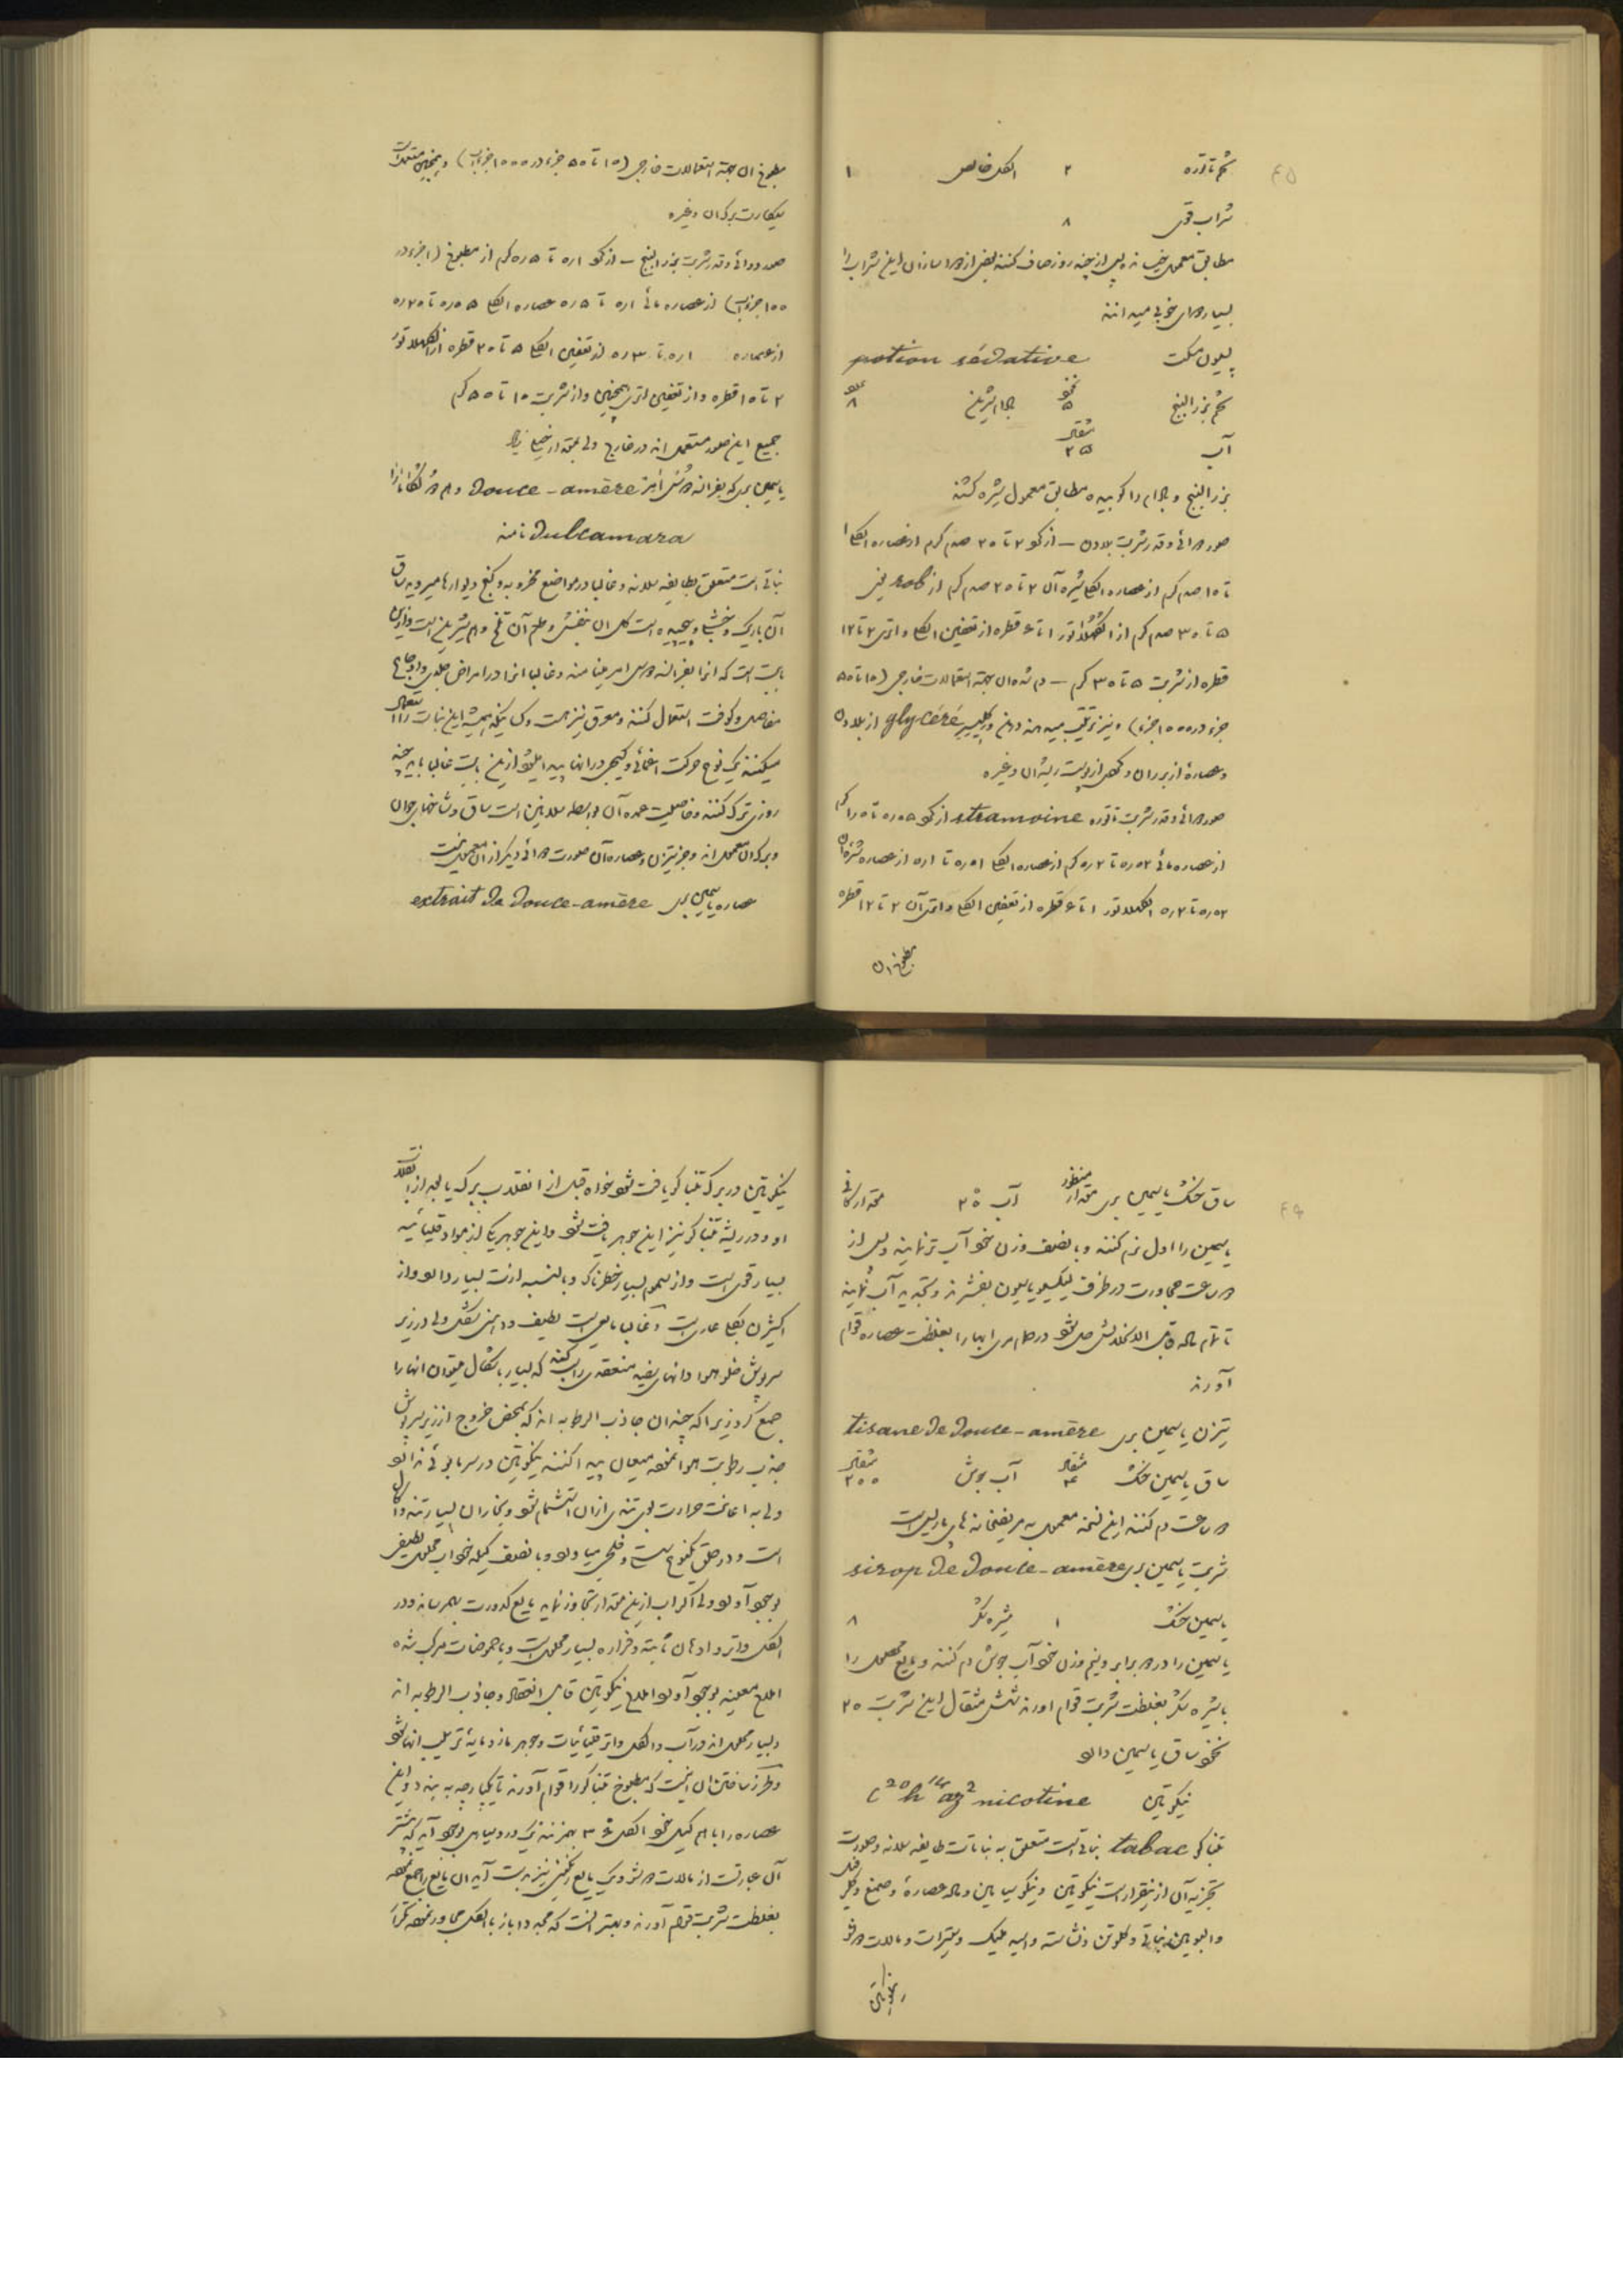 ۴۵
تخم تاتوره ۲ الکل خالص ۱
شراب قوی ۸
مطابق معمول خیسانده پس از چند روز صاف کنند بعضی از دواسازان این شراب را
بسیار دوای خوبی میدانند
پسیون مسکت potion sédative
تخم بزرالبنج نخود ۵ بادام شیرین عدد ۸
آب مثقال ۲۵
بزرالبنج و بادام را کوبیده مطابق معمول شیره کشند
صور دوائی و قدر شربت بلادن – از گرد ۲ تا ۲۰ صدم گرم از عصاره الکلی ۱
تا ۱۵ صدم گرم از عصاره الکلی شیره آن ۲ تا ۲۰ صدم گرم از rob نیز
۵ تا ۳۰ صدم گرم از الکلاتور ۱ تا ۶ قطره از تعفین الکلی و اتری ۲ تا ۱۲
قطره از شربت ۵ تا ۳۰ گرم – دم شده آن بجهة استعمالات خارجی (۱۵ تا ۵۰
جزء در ۱۰۰۰ جزء) و نیز ترتیب میدهند دهن و گلیسیره glycéré از بلادن
و عصاره از بذر آن و گهی از پوست ریشه آن و غیره
صور دوائی و قدر شربت تاتوره stramoine از گرد ۰٫۰۵ تا ۰٫۵ گرم
از عصاره مائی ۰٫۰۲ تا ۰٫۲ گرم از عصاره الکلی ۰٫۰۱ تا ۰٫۱ از عصاره شیره آن
۰٫۰۲ تا ۰٫۲ الکلاتور ۱ تا ۶ قطره از تعفین الکلی و اتری آن ۲ تا ۱۲ قطره
مطبوخ آن
مطبوخ آن بجهة استعمالات خارجی (۱۵ تا ۵۰ جزء در ۱۰۰۰ جزء آب) و همچنین متعملست
سیگارت برگ آن و غیره
صور دوائی و قدر شربت بزرالبنج – از گرد ۰٫۱ تا ۰٫۵ گرم از مطبوخ (۱ جزء در
۱۰۰ جزء آب) از عصاره مائی ۰٫۱ تا ۰٫۵ عصاره الکلی ۰٫۰۵ تا ۰٫۲۵
از عصاره ۰٫۱ تا ۰٫۳ از تعفین الکلی ۵ تا ۲۰ قطره از الکلاتور
۲ تا ۱۵ قطره و از تعفین اتری همچنین و از شربت ۱۰ تا ۵۰ گرم
جمیع این صور مستعمل اند در خارج ولی بمقدار خیلی زیاد
یاسمین بری که بفرانسه دوس امر Douce-amère و هم دولکامارا
Dulcamara نامند
نباتی است متعلق بطایفه سلانه و غالبا در مواضع مخروبه و کنج دیوارها میروید ساق
آن باریک و خشبی و پیچیده است گل آن بنفش و طعم آن تلخ و هم شیرین است و از این
بابت است که آنرا بفرانسه دوس امر مینامند و غالبا آنرا در امراض جلدی و اوجاع
مفاصل و کوفت استعمال کنند و معرق نیز هست و کسانیکه همیشه این نبات را استعمال
میکنند یک نوع حرکت اغمائی و گیجی در آنها پیدا میشود از این بابت غالبا باید چند
روزی ترک کنند و خاصیت عمده آن بواسطه سلانین است ساق و شاخهای جوان
و برگ آن معمول اند و جز تیزن و عصاره آن صورت دوائی دیگر از آن معمول نیست
عصاره یاسمین بری extrait de Douce-amère
۴۶
ساق خشک یاسمین بری مقدار منظور آب ۲۰° مقدار کافی
یاسمین را اول نرم کنند و با نصف وزن خود آب تر نمایند و پس از
دو ساعت مجاورت در ظرف لیکسیویاسیون بفشرند و تجدید آب نمایند
تا تمام ماده قابل الانحلالش حل شود در حمام ماری آبها را بغلظت عصاره قوام
آورند
تیزن یاسمین بری tisane de Douce-amère
ساق یاسمین خشک مثقال ۴ آب جوش مثقال ۲۰۰
دو ساعت دم کنند این نسخه معمول به مریضخانه های پاریس است
شربت یاسمین بری sirop de Douce-amère
یاسمین خشک ۱ شیره شکر ۸
یاسمین را در دو برابر و نیم وزن خود آب جوش دم کنند و مایع محصول را
با شیره شکر بغلظت شربت قوام آورند شش مثقال این شربت ۲۰
نخود ساق یاسمین دارد
نیکوتین C²⁰h¹⁴az² nicotine
تنباکو tabac نباتی است متعلق به نباتات طایفه سلانه و صورت
تجزیه آن از اینقرار است نیکوتین و نیکوسیانین و ماده عصاره و صمغ و کلرفیل
و البومین نباتی و گلوتن و نشاسته و اسید ملیک و نیترات و ملات دو شو
نیکوتین
نیکوتین در برگ تنباکو یافت شود خواه قبل از انقلاب برگ یا بعد از انقلاب
او و در ریشه تنباکو نیز این جوهر یافت شود و این جوهر یکی از مواد قلیائیه
بسیار قوی است و از سموم بسیار خطرناک و بالنسبه ازت بسیار دارد و از
اکسیژن بکلی عاری است و غالبا مایعی است لطیف و دهنی شکل ولی در زیر
سرپوش خلو هوا دانهای بیضیه منعقدی را کند که بسیار باشکال میتوان آنها را
جمع کرد زیرا که چندان جاذب الرطوبه اند که بمحض خروج از زیر سرپوش
جذب رطوبت هوا نموده میعان پیدا کنند نیکوتین در سرما بوئی ندارد
ولی به اعانت حرارت بوی تندی از آن استشمام شود و بخار آن بسیار تند و اکال
است و در حلق یکنوع
بوجود آورد ولی اگر آب از این مقدار تجاوز نماید مایع کدورت بهمرساند و در
الکل و اتر و ادهان ثابته و فراره بسیار محلول است و با حموضات مرکب شده
املاح معینه بوجود آورد املاح نیکوتین قابل انعقاد و جاذب الرطوبه اند
و بسیار محلول اند در آب و الکل و اتر قلیائیات و جوهر مازو مایه ترسیب آنها شود
و طرز ساختن آن اینست که مطبوخ تنباکو را قوام آورند تا یکپارچه ببندد و این
عصاره را با هم کیل خود الکل ۳۶ بهمزنند یک رسوب سیاهی بوجود آید که بیشتر
آن عبارتست از مالات دو شو و یک مایع رنگینی نیز بدست آید این مایع را جمع نموده
بغلظت شربت قوام آورند و بهتر آنست که مجددا باز با الکل مجاور نموده مکررا